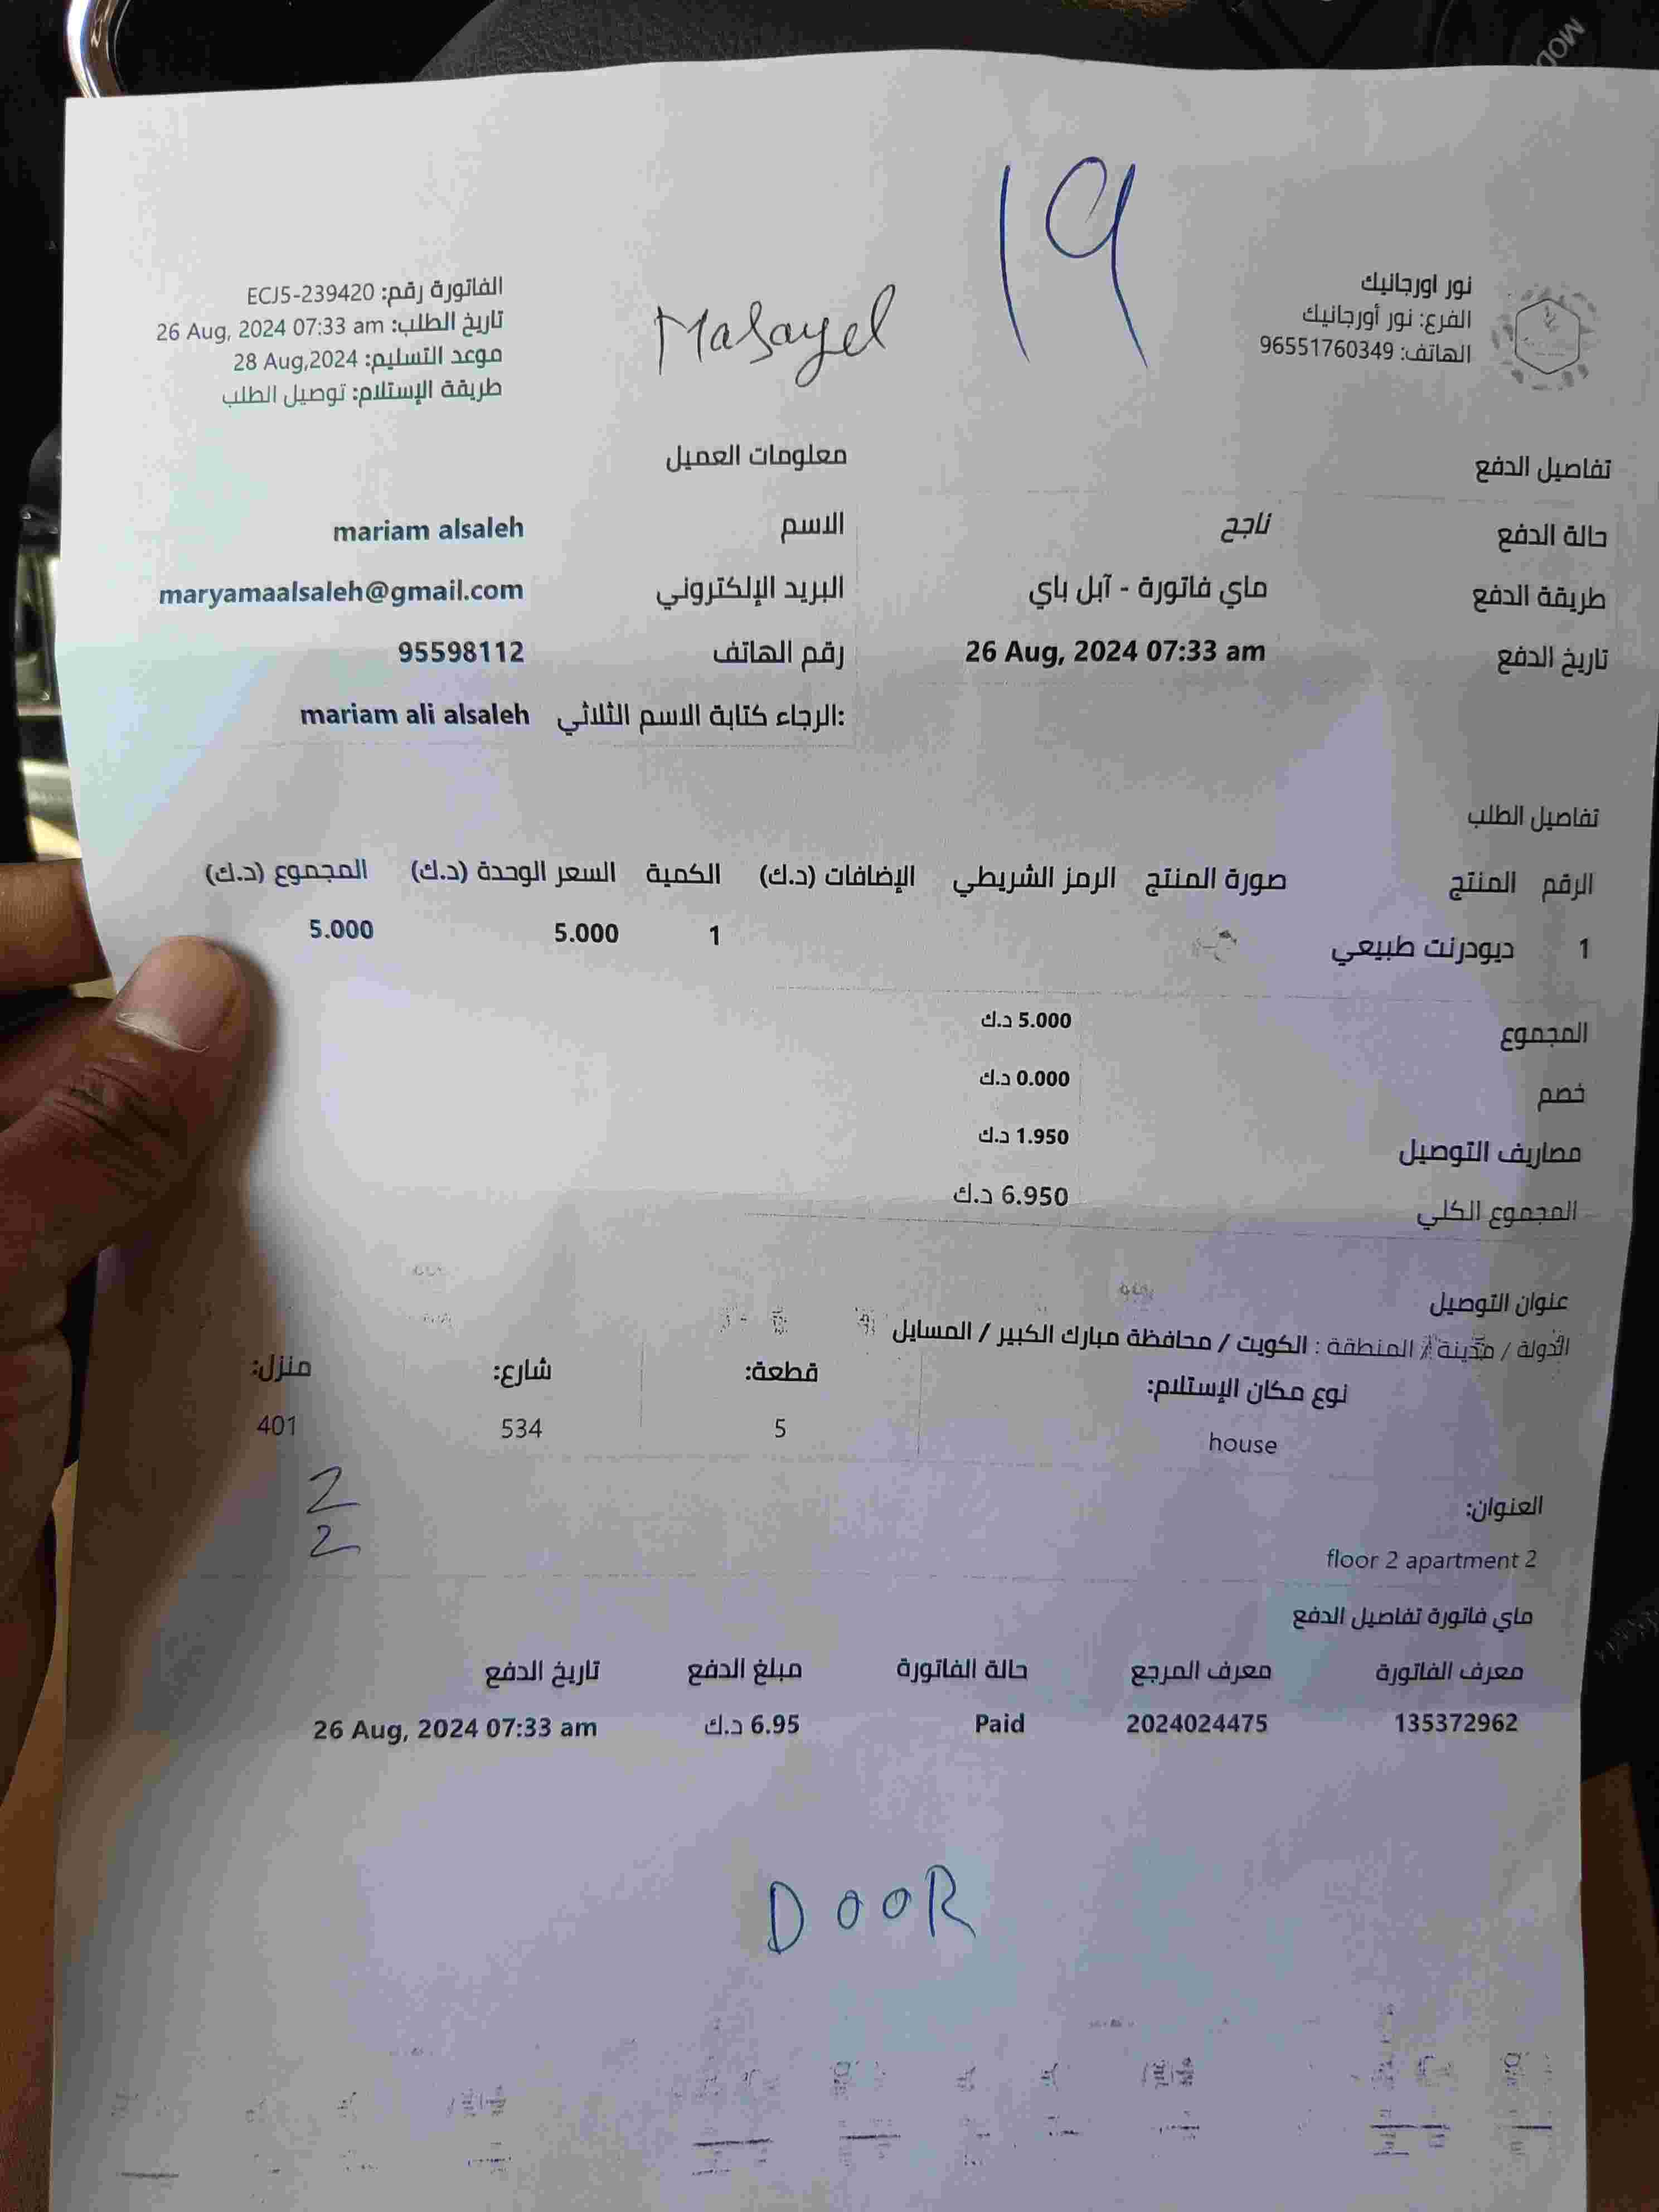 19
Masayel
نور اورجانيك
الفرع: نور أورجانيك
الهاتف: 96551760349
الفاتورة رقم: ECJ5-239420
تاريخ الطلب: 26 Aug, 2024 07:33 am
موعد التسليم: 28 Aug,2024
طريقة الإستلام: توصيل الطلب
تفاصيل الدفع
حالة الدفع ناجح
طريقة الدفع ماي فاتورة - آبل باي
تاريخ الدفع 26 Aug, 2024 07:33 am
معلومات العميل
الاسم mariam alsaleh
البريد الإلكتروني maryamaalsaleh@gmail.com
رقم الهاتف 95598112
الرجاء كتابة الاسم الثلاثي: mariam ali alsaleh
تفاصيل الطلب
الرقم المنتج صورة المنتج الرمز الشريطي الإضافات (د.ك) الكمية السعر الوحدة (د.ك) المجموع (د.ك)
1 ديودرنت طبيعي 1 5.000 5.000
المجموع 5.000 د.ك
خصم 0.000 د.ك
مصاريف التوصيل 1.950 د.ك
المجموع الكلي 6.950 د.ك
عنوان التوصيل
الدولة / مدينة / المنطقة : الكويت / محافظة مبارك الكبير / المسايل
نوع مكان الإستلام: قطعة: شارع: منزل:
house 5 534 401
2
2
العنوان:
floor 2 apartment 2
ماي فاتورة تفاصيل الدفع
معرف الفاتورة معرف المرجع حالة الفاتورة مبلغ الدفع تاريخ الدفع
135372962 2024024475 Paid 6.95 د.ك 26 Aug, 2024 07:33 am
DOOR